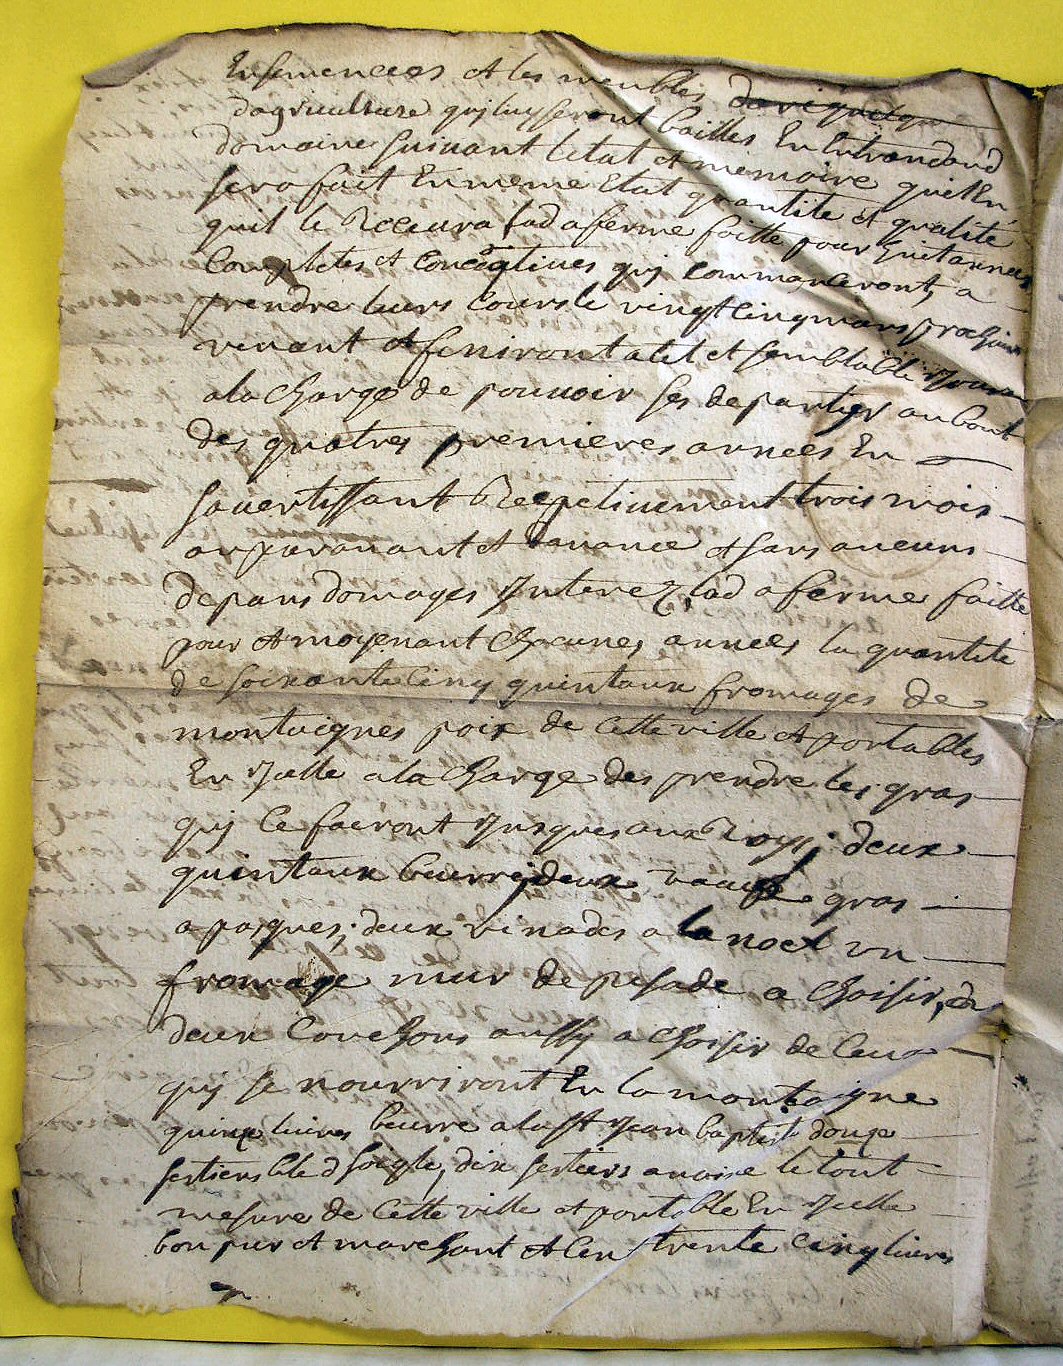 Ensemencees et les meubles
dagriculture quj luy seront bailles En Entrand aud
domaine suivant letat et memoire quil En
sera fait En meme Etat quantite et qualité
quil le Recevra lad aferme faitte pour huit annees
Completes et consecutives quj commanceront a
prendre leurs cours le vingt cinq mars prochain
venant et finiront a tel et semblable Jour
a la Charge de pouvoir ses departir au bout
des quatres premieres annees En
savertissant Respetivement trois mois
auparavant et davance et sans aucuns
depans domages Interez, lad aferme faitte
pour et moyenant Chacunes annees la quantité
de soixante cinq quintaux fromages de
montaignes poix de cette ville et portables
En Icelle a la Charge des prendre les gras
quj ce fairont Jusques aux Roys; deux
quintaux beurre; deux veaux gras
a pasques; deux vinades a la noel un
fromage mur de pesade a Choisir, et
deux Couchons aussy a Choisir de Ceux
quj se nourriront En la montaigne
quinze livres beurre a la st Jean baptiste douze
sestiers bled seigle, dix sestiers avoine le tout
mesure de Cette ville et portable En Icelle
bon pur et marchant et Cen trente cinq livres